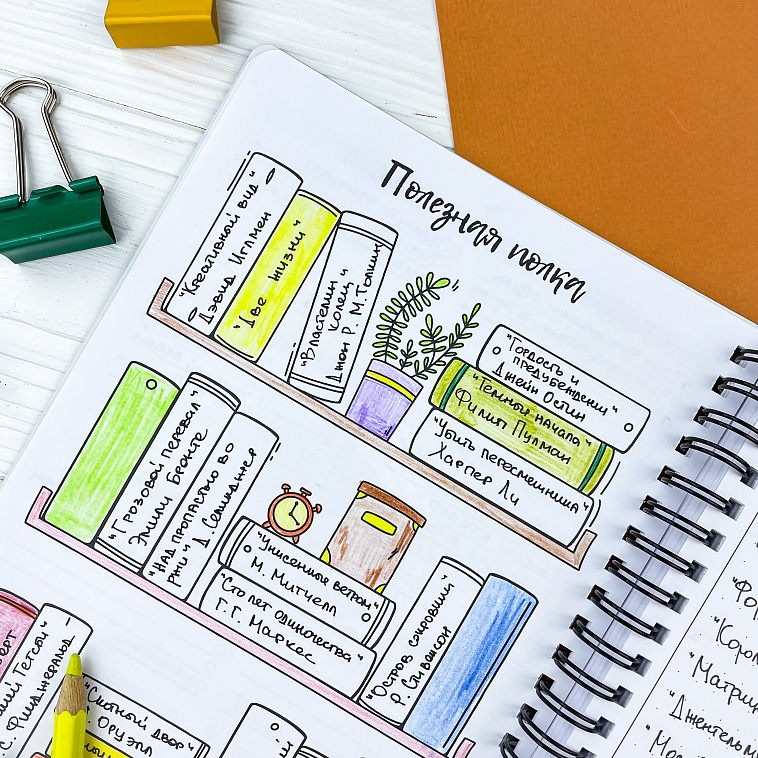 Полезная полка
"Креативный вид"
Дэвид Иглмен
"Две жизни"
"Властелин
колец"
Джон Р. М. Толкин
"Гордость и
предубеждении"
Джейн Остин
"Темные начала"
Филип Пулман
"Убить пересмешника"
Харпер Ли
"Грозовой перевал"
Эмили Бронте
"Над пропастью во
ржи" Д. Селинджер
"Унесенные ветром"
М. Митчелл
"Сто лет одиночества"
Г. Г. Маркес
"Остров сокровищ"
Р. Стивенсон
Гэтсби"
С. Фицджеральд
"Скотный двор"
Оруэлл
"Матри
"Джентельм